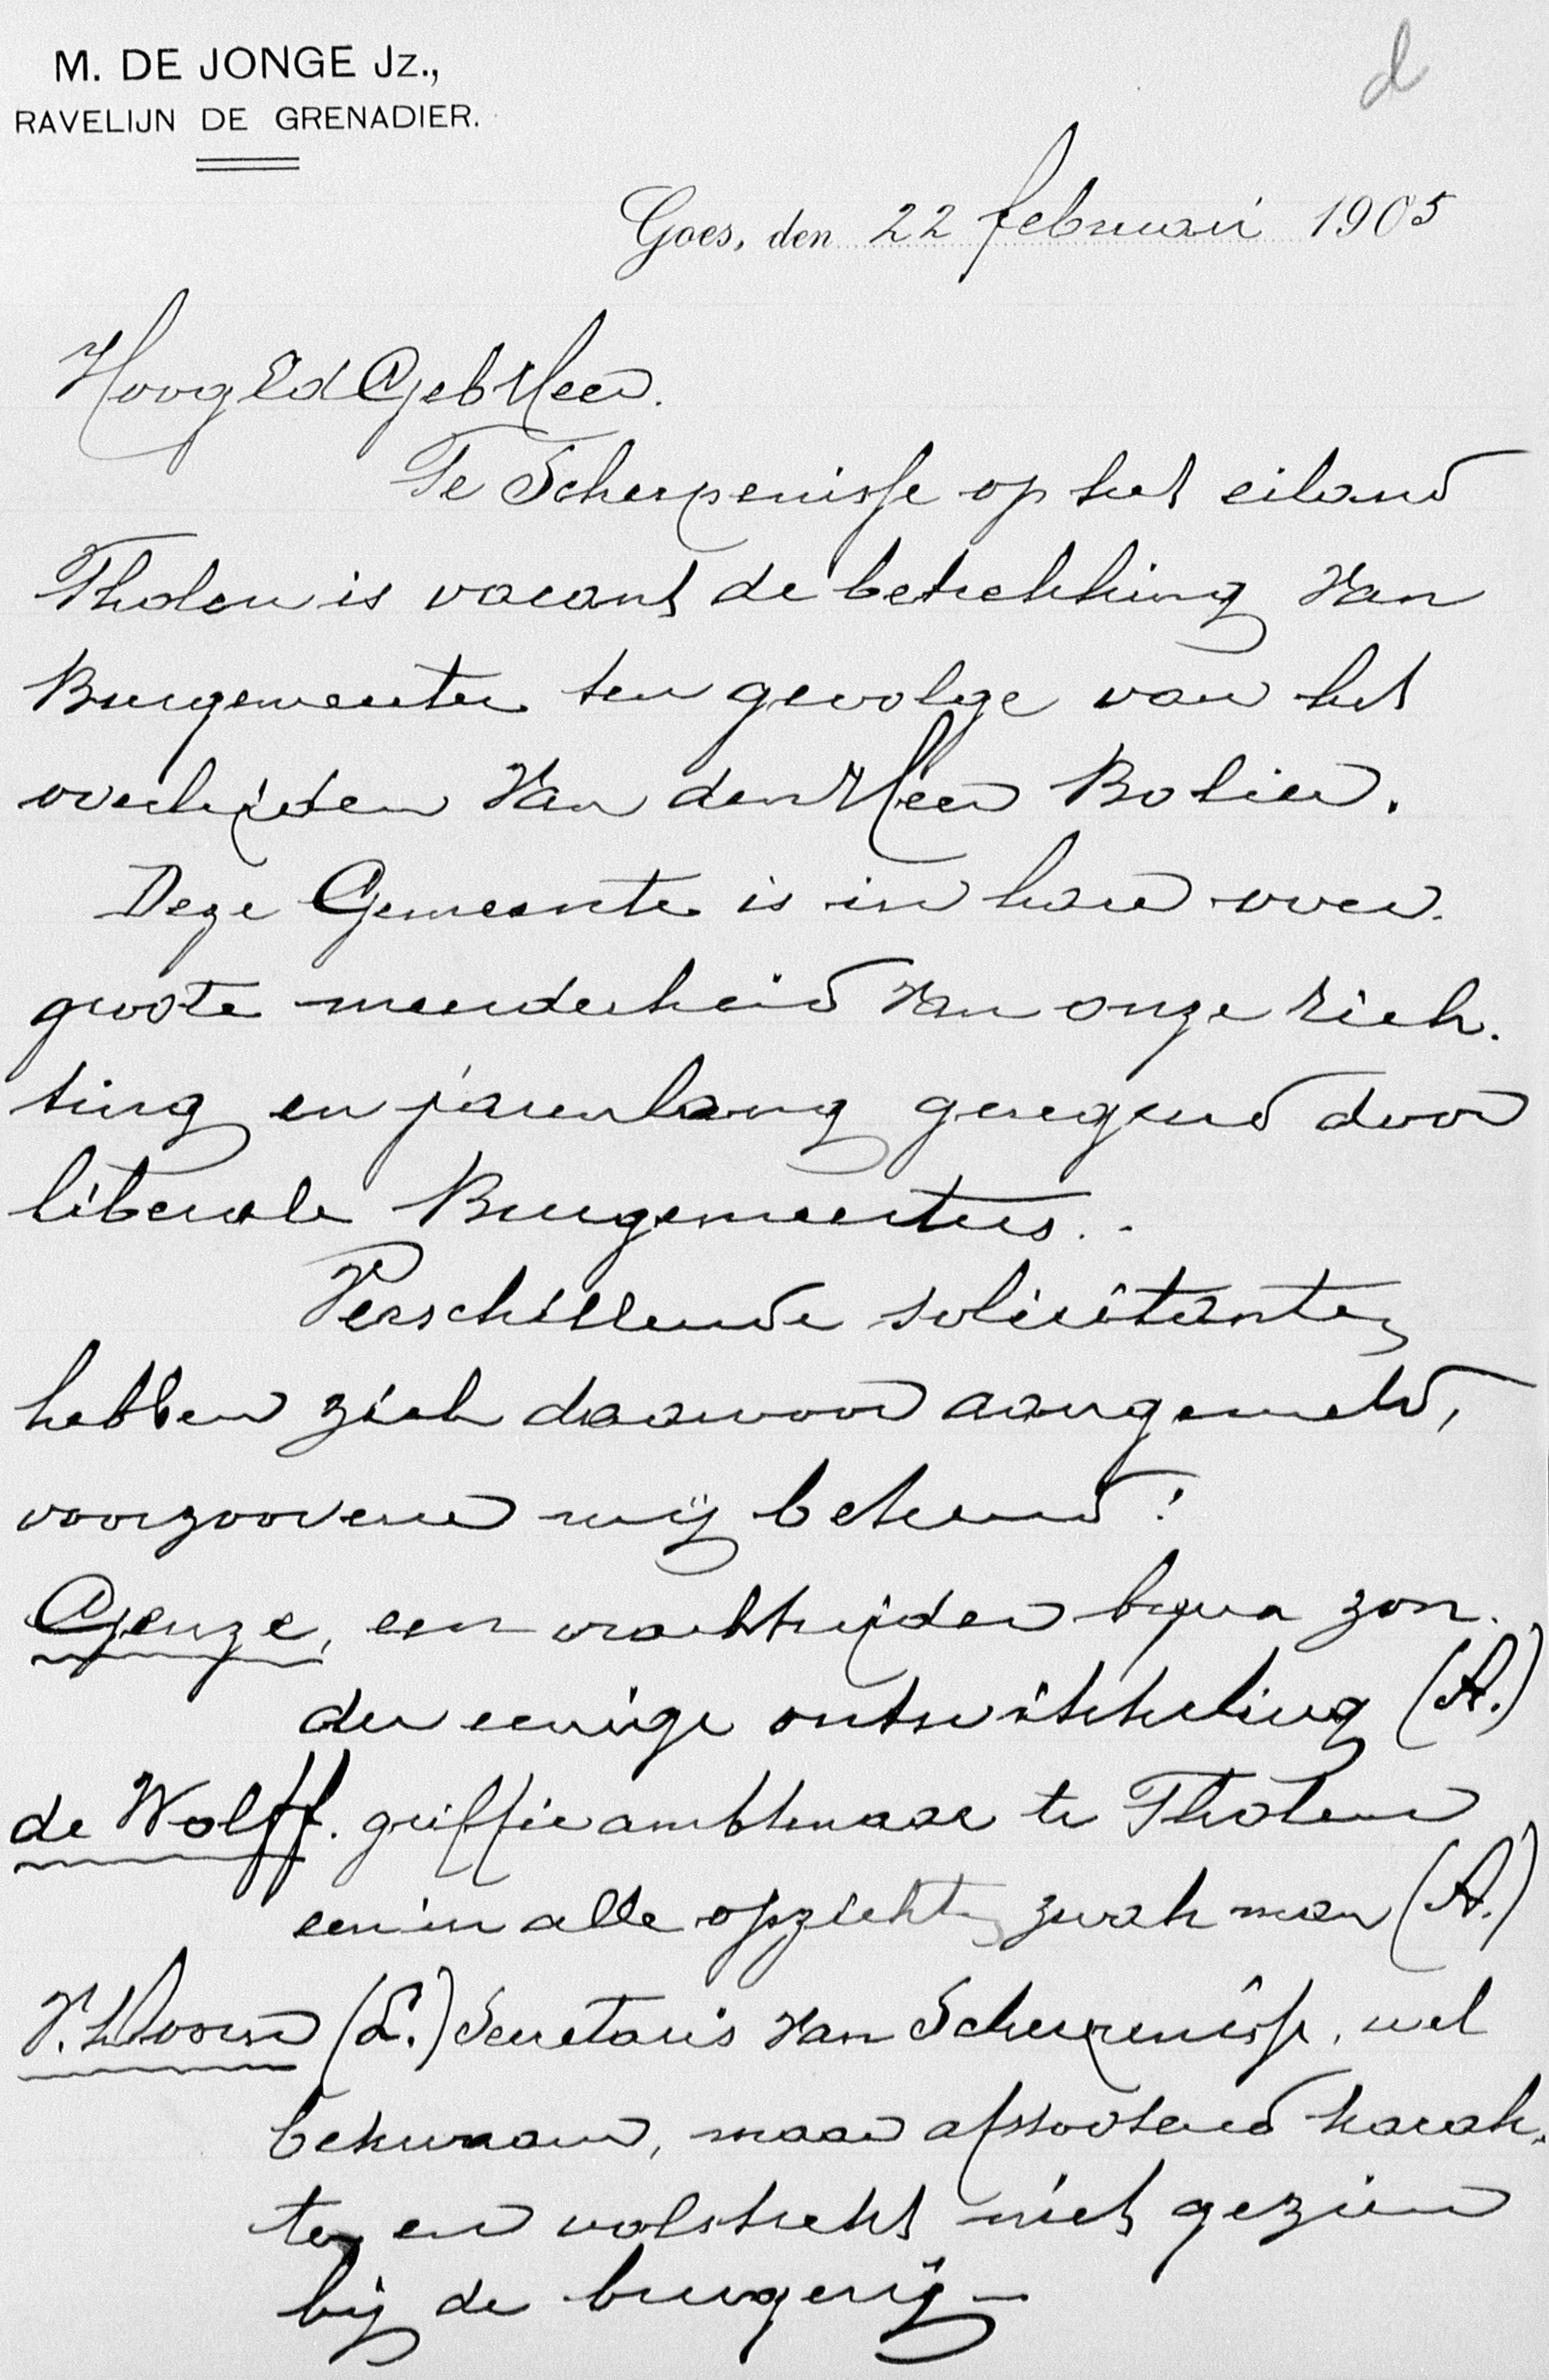 M. DE JONGE Jz.,
RAVELIJN DE GRENADIER.
d
Goes, den 22 februari 1905
HoogEdGeb Heer.
Te Scherpenisse op het eiland
Tholen is vacant de betrekking van
Burgemeester ten gevolge van het
overlijden van den Heer Bolier.
Deze Gemeente is in hare over-
groote meerderheid van onze rich-
ting en jarenlang geregeerd door
liberale Burgemeesters.-
Verschillende solicitanten
hebben zich daarvoor aangemeld,
voorzooveer mij bekend:
Geuze, een vrachtrijder bijna zon-
der eenige ontwikkeling (A.)
de Wolff. griffie ambtenaar te Tholen
een in alle opzichten zwak man (A.)
(L.) Secretaris van Scherpenisse, wel
bekwaam, maar afstootend karak-
ter en volstrekt niet gezien
bij de burgerij -